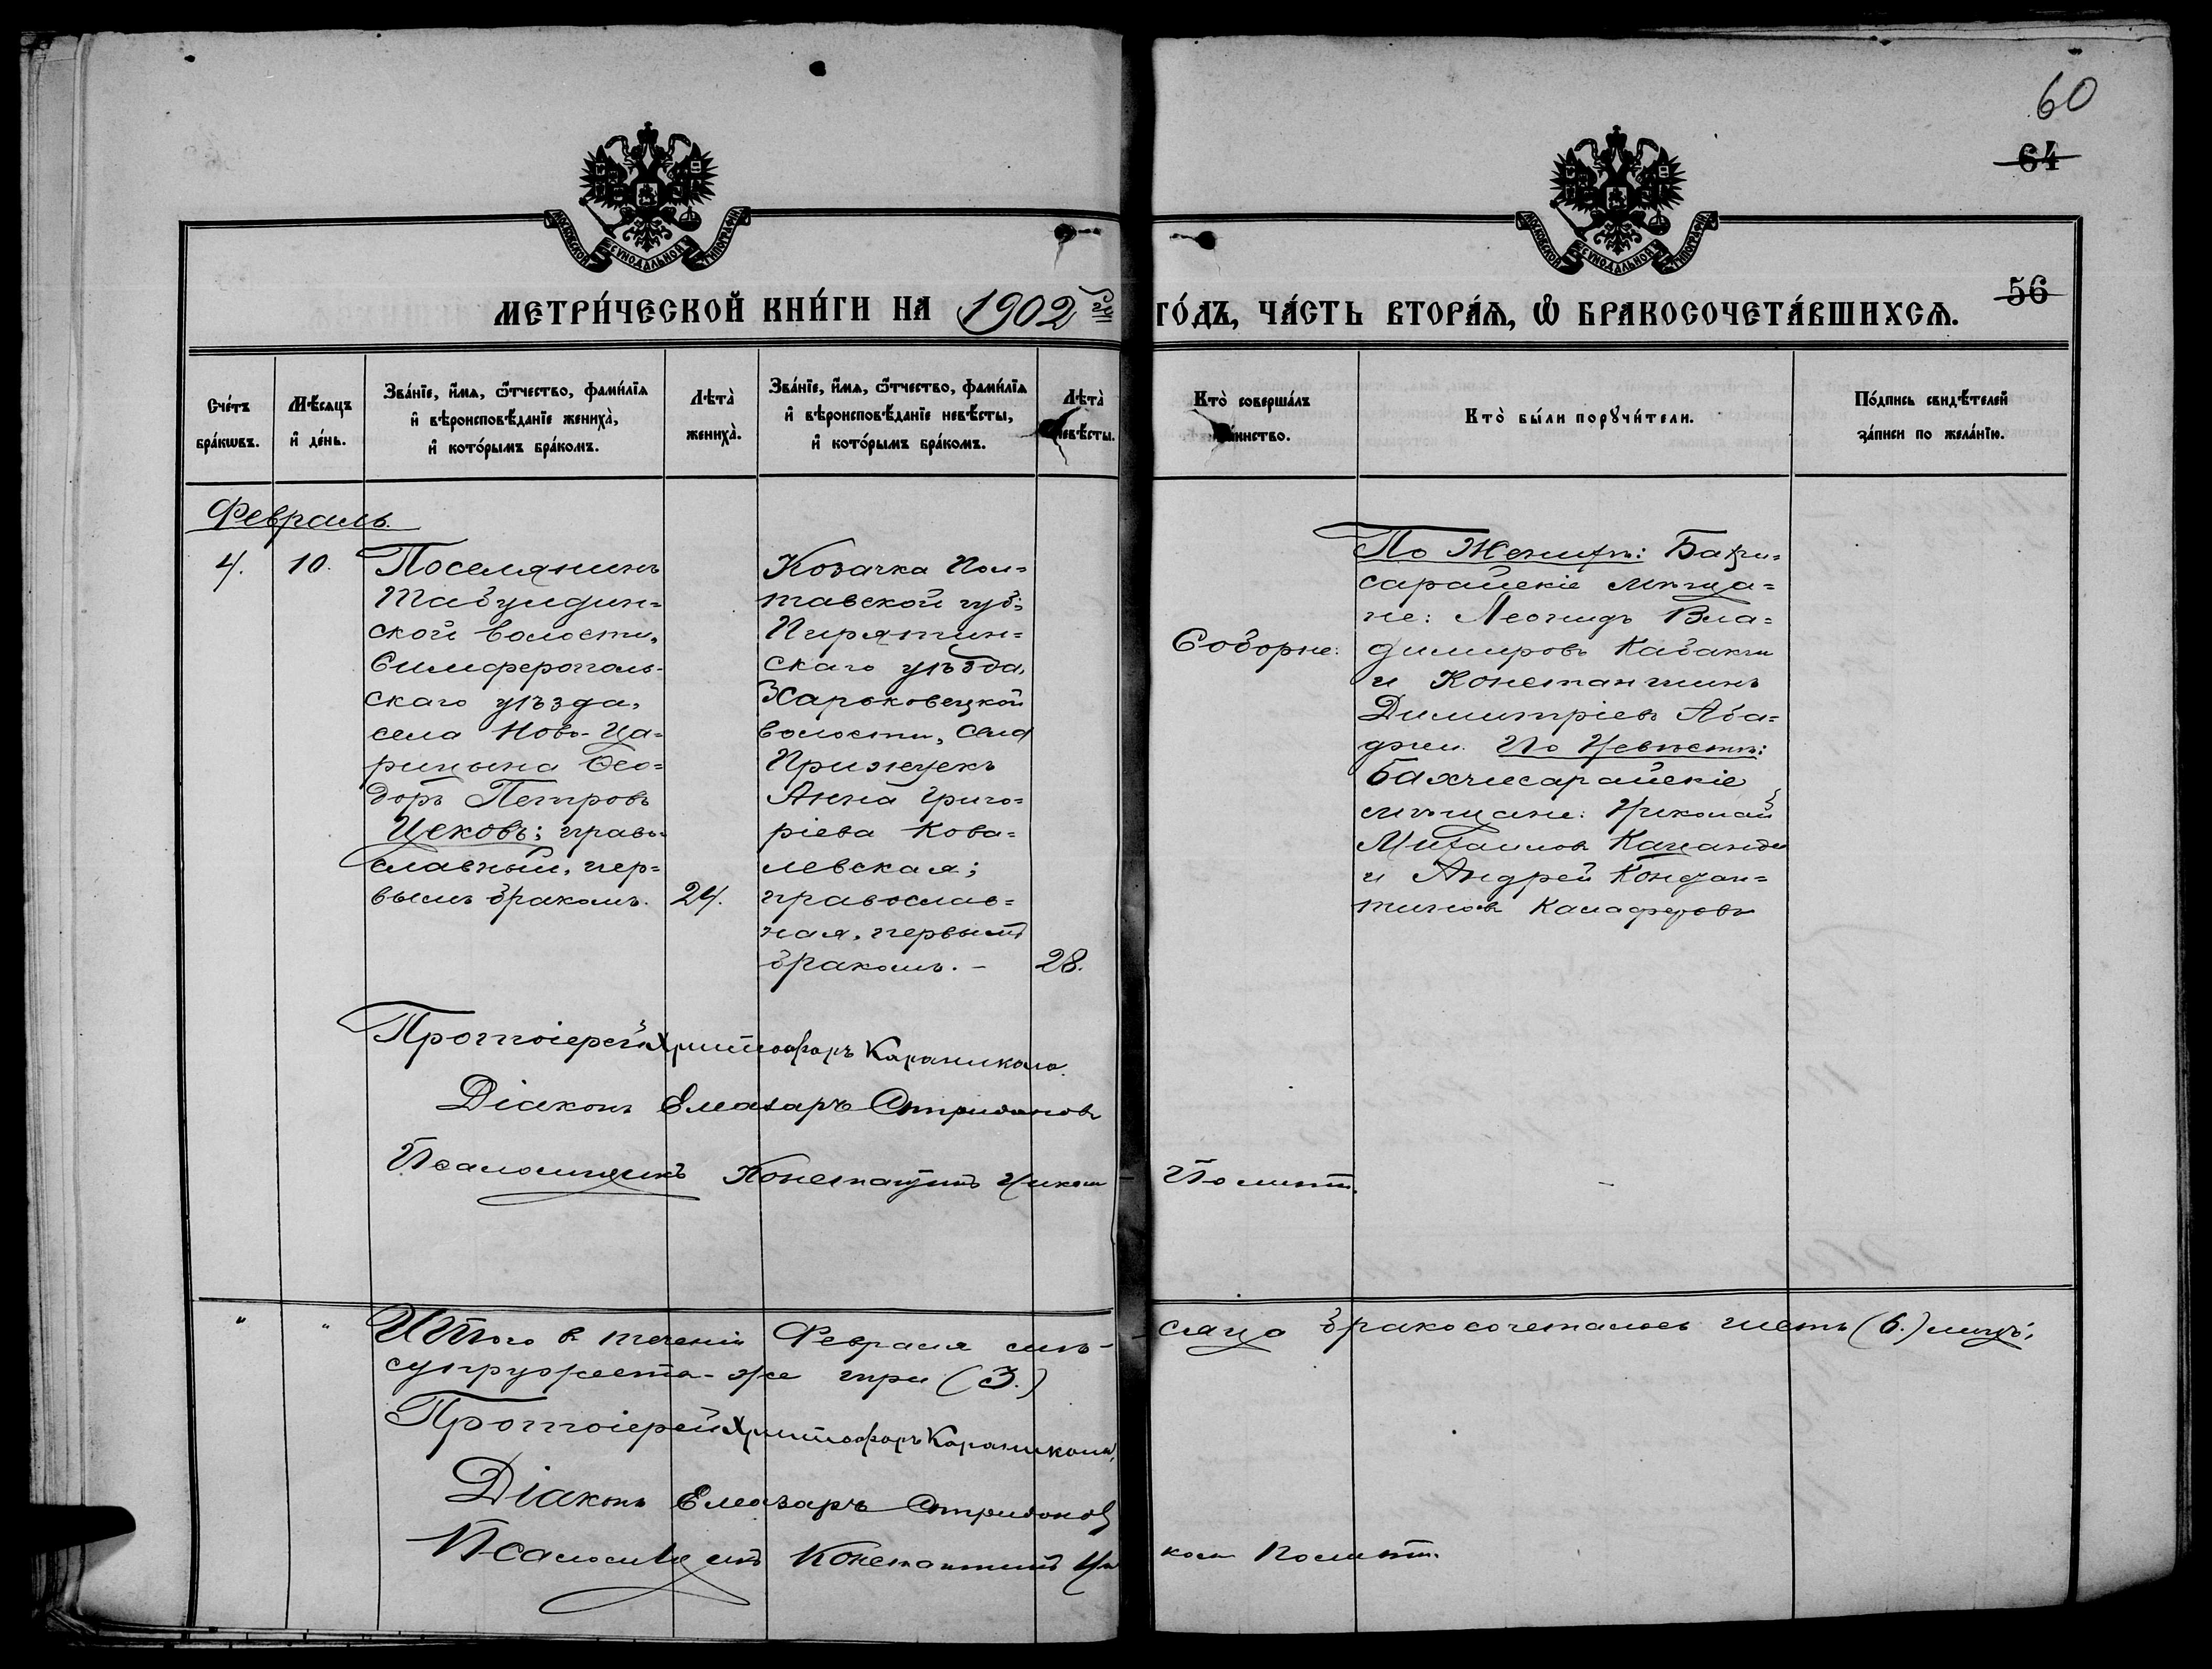 60
64
56
МОСКОВСКОЙ СѴНОДАЛЬНОЙ ТИПОГРАФІИ
МОСКОВСКОЙ СѴНОДАЛЬНОЙ ТИПОГРАФІИ
МЕТРИ́ЧЕСКОЙ КНИ́ГИ НА 1902 ГО́ДЪ, ЧА́СТЬ ВТОРА́Ѧ, Ѽ БРАКОСОЧЕТА́ВШИХСѦ.
Сче́тъ
бра́кѡвъ.
Мѣ́сяцъ
и҆ де́нь.
Зва́нїе, и҆́мѧ, ѻ҆́тчество, фами́лїѧ
и҆ вѣроисповѣ́данїе жениха̀,
и҆ кото́рымъ бра́комъ.
Лѣта̀
жениха̀.
Зва́нїе, и҆́мѧ, ѻ҆́тчество, фами́лїѧ
и҆ вѣроисповѣ́данїе невѣ́сты,
и҆ кото́рымъ бра́комъ.
Лѣта̀
невѣ́сты.
Кто̀ соверша́лъ
таинство.
Кто̀ бы́ли порꙋчи́тели.
По́дпись свидѣ́телей
за́писи по жела́нїю.
Февраль.
4.
10.
Поселянинъ
Табулдин=
ской волости,
Симферополь-
скаго уѣзда,
села Ново-Ца=
рицына Ѳео=
доръ Петровъ
Цековъ; право-
славный, пер=
вымъ бракомъ.
24.
Козачка Пол=
тавской губ:
Пирятин=
скаго уѣзда,
Харьковецкой
волости, села
Приженекъ
Анна Григо=
ріева Кова=
левская;
православ=
ная, первымъ
бракомъ. -
28.
Соборне:
По Женихѣ: Бахчи=
сарайскіе мѣща=
не: Леонидъ Вла=
диміровъ Кабакчи
и Константинъ
Димитріевъ Аба=
джи. По Невѣстѣ:
Бахчисарайскіе
мѣщане: Николай
Михаиловъ
и Андрей Констан=
тиновъ Калафатовъ
Протоіерей Христофоръ Караникола.
Діаконъ Елеазаръ Спиридоновъ
Псаломщикъ Константинъ Никол
" " Итого въ теченіи Февраля мѣ-
сяца бракосочеталось шесть (6.) лицъ;
супружества-же три (3.)
Протоіерей Христофоръ Караникола,
Діаконъ Елеазаръ Спиридоновъ
Псаломщикъ Константинъ